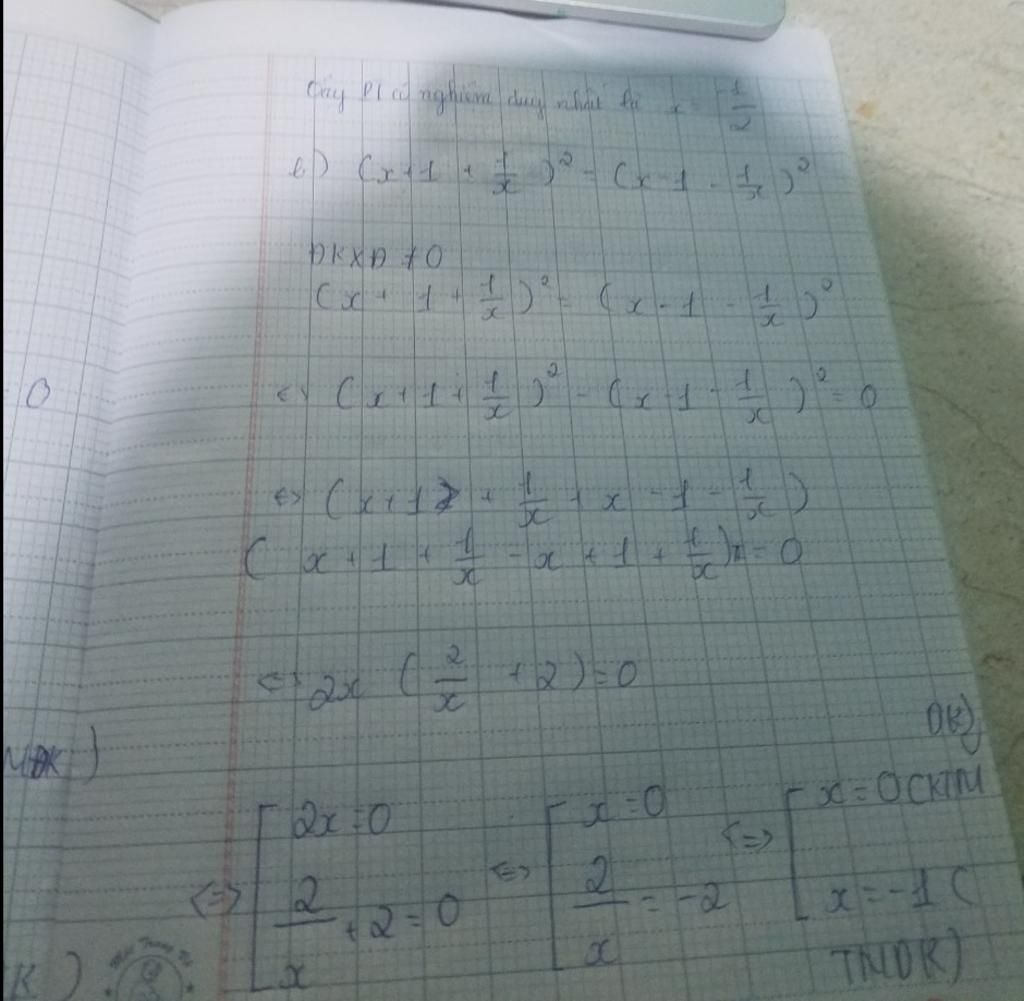 Vậy PT có nghiệm duy nhất là x = -1/2
b) (x+1 + 1/x)² = (x-1 - 1/x)²
ĐKXĐ ≠0
(x + 1 + 1/x)² = (x - 1 - 1/x)²
<=> (x+1+ 1/x)² - (x-1- 1/x)² = 0
<=> (x+1 + 1/x + x - 1 - 1/x)
(x + 1 + 1/x - x + 1 + 1/x) = 0
<=> 2x (2/x + 2) = 0
<=> [ 2x=0 <=> [ x=0 <=> [ x=0 (KTM ĐK)
2/x + 2 = 0 2/x = -2 x = -1 (TMĐK)
= 0
MĐK)
K)